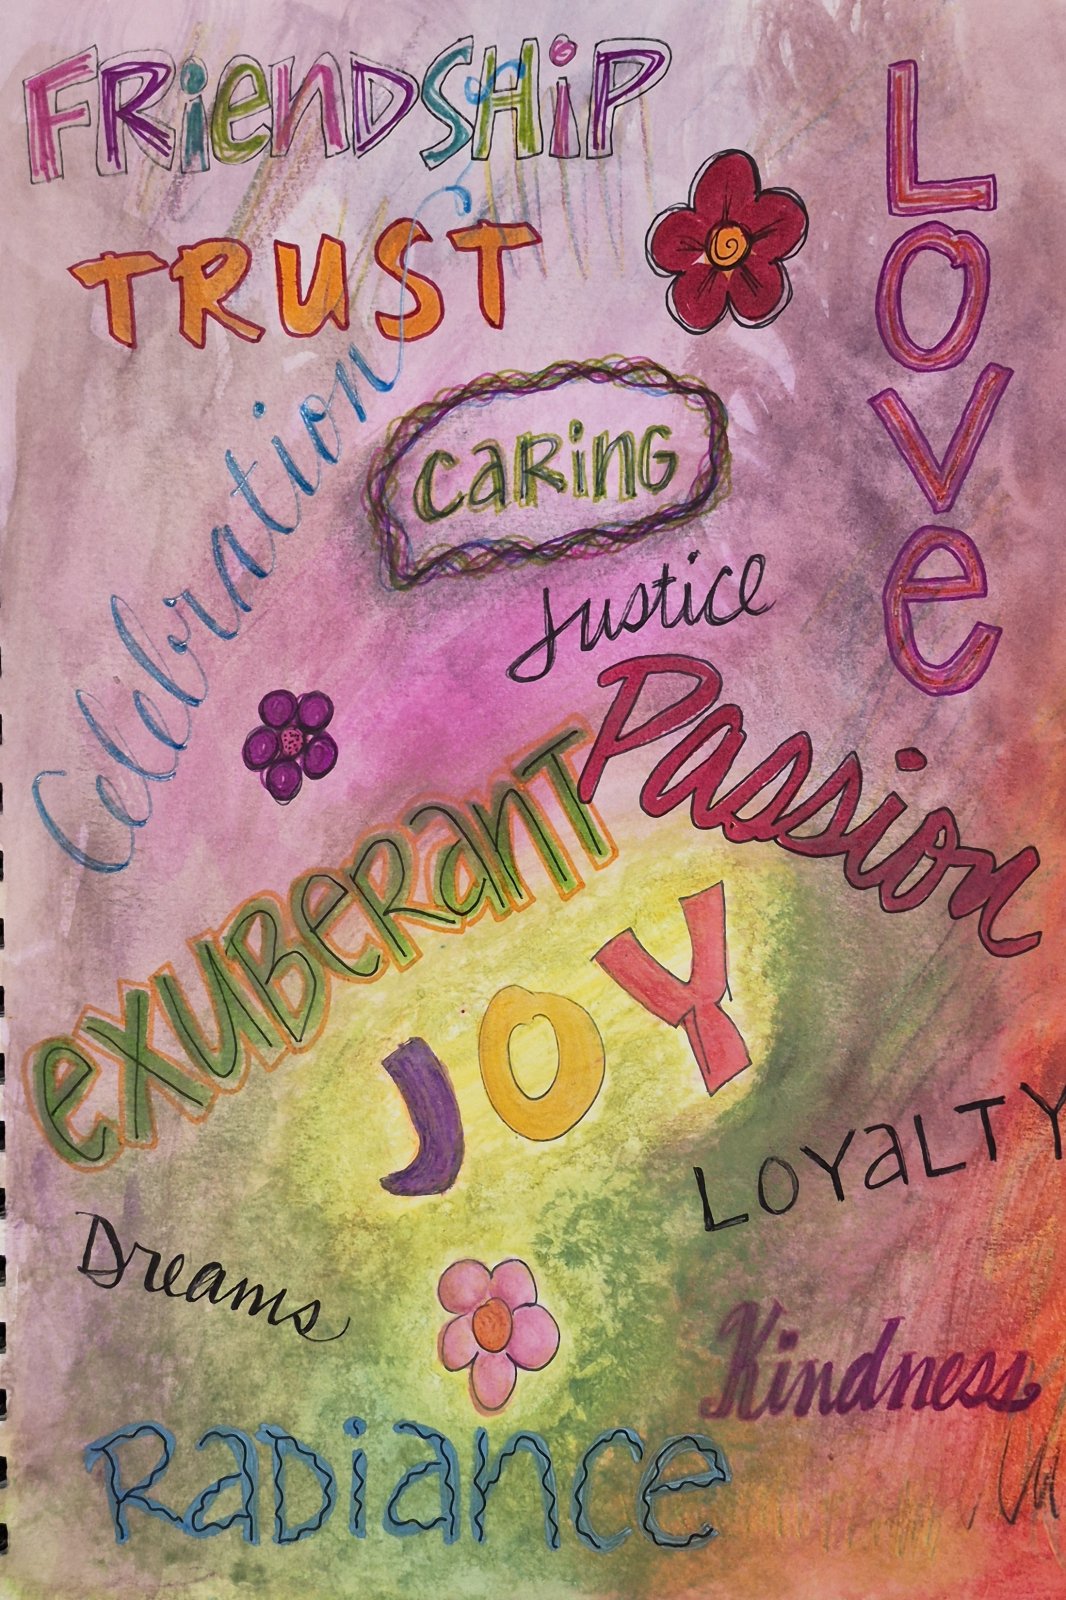 FRiEnDSHiP
TRUST
Love
Celebrations
CaRinG
Justice
Passion
eXUBeRanT
JOY
LOYaLTY
Dreams
Kindness
RaDiance